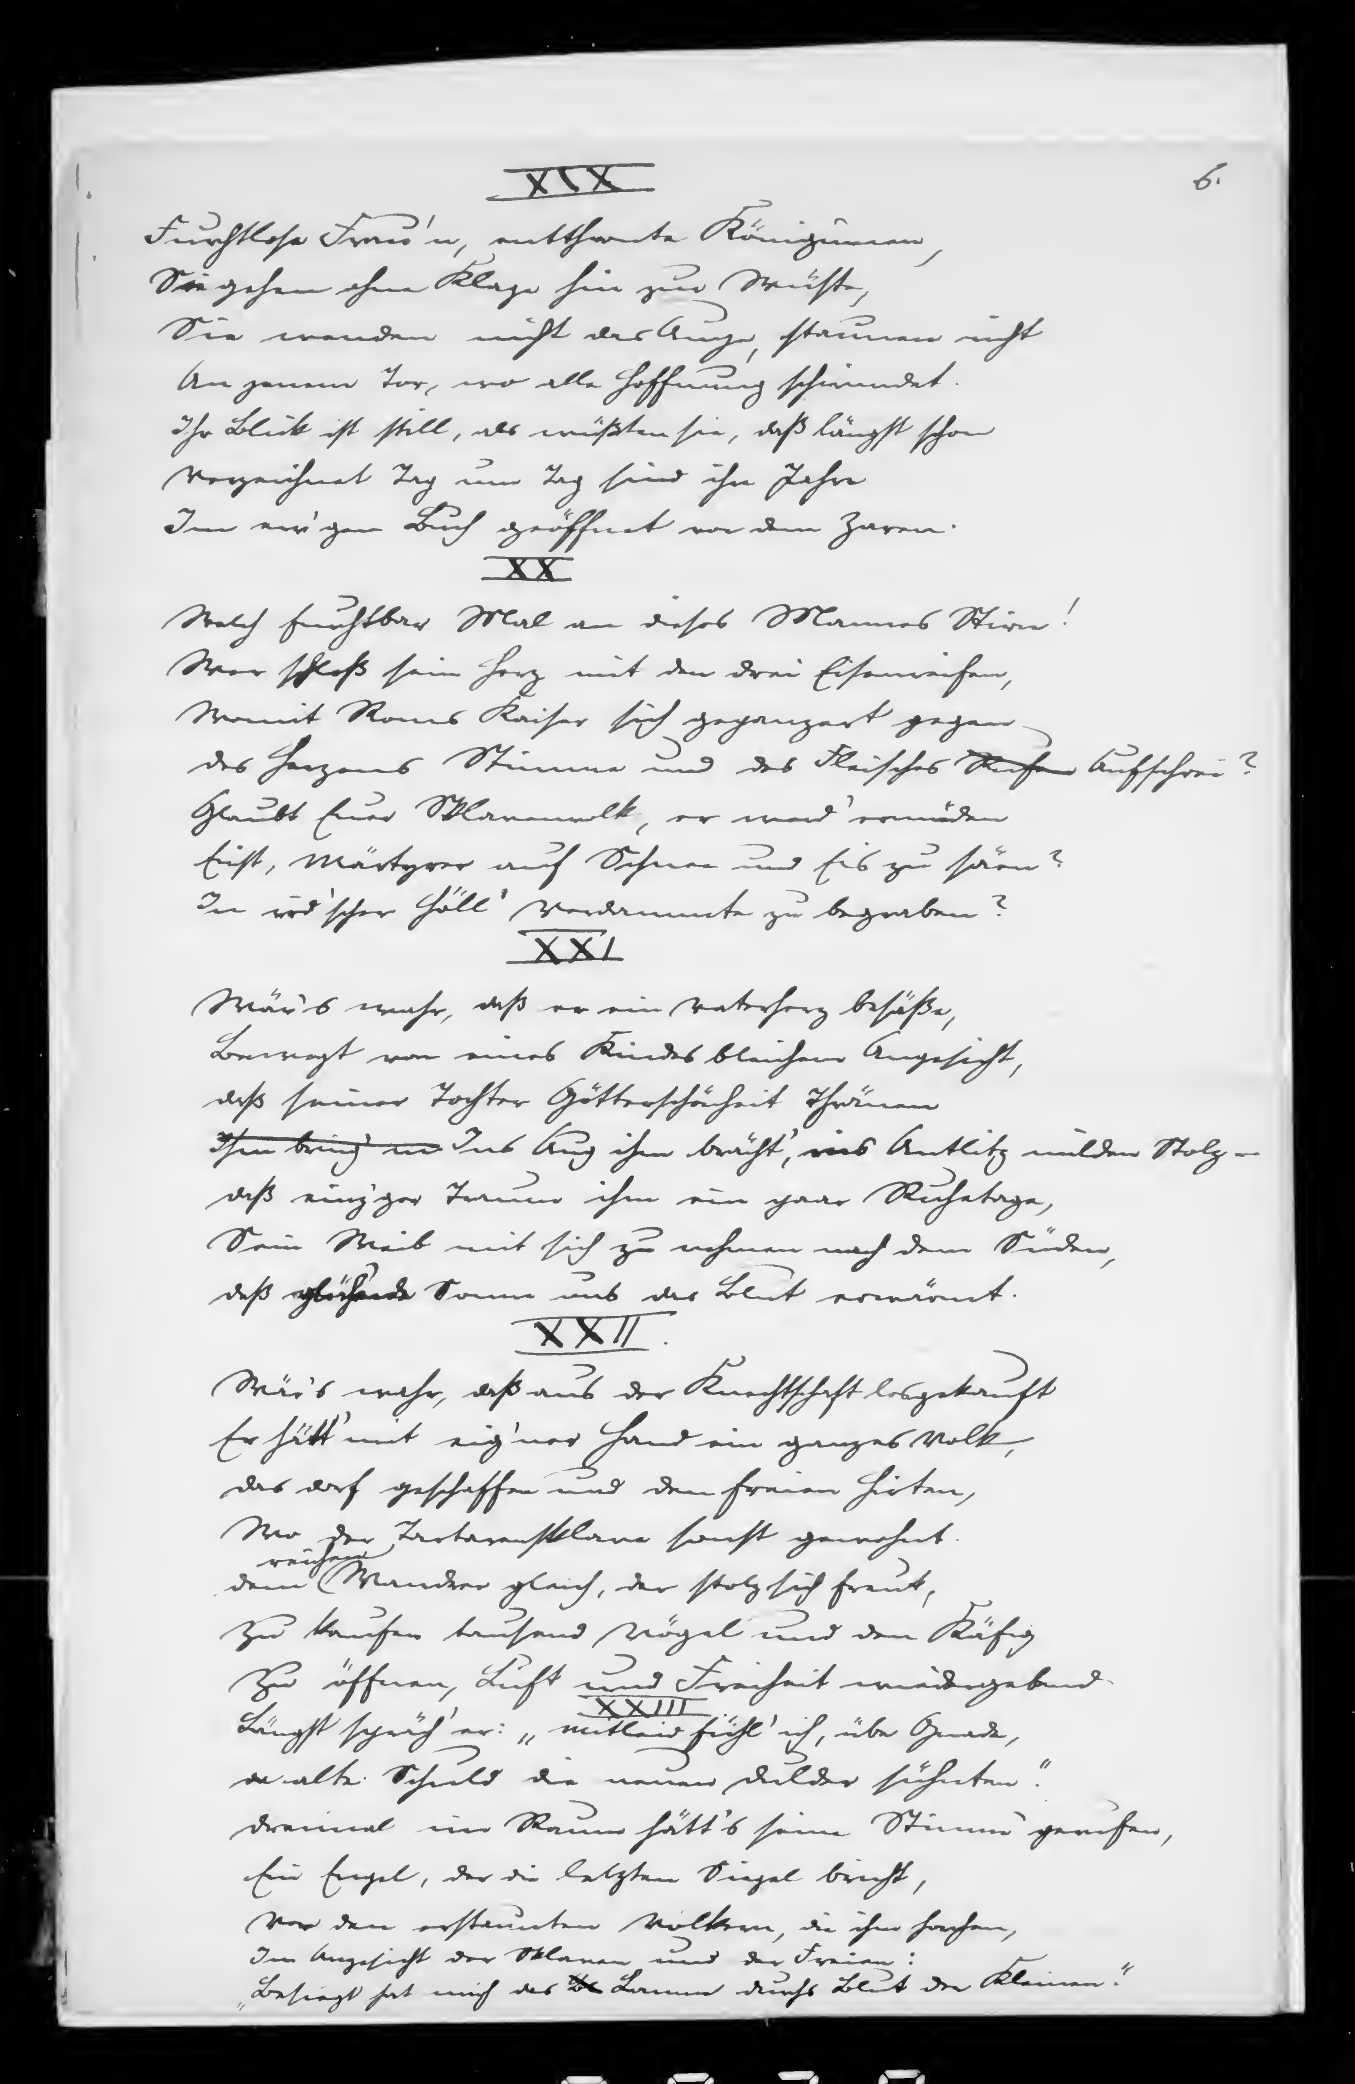 6.
XIX
Furchtlose Frau'n, entthronte Königinnen,
Sie gehen ohne Klage hin zur Wüste,
Sie wenden nicht das Auge, staunen nicht
An jenem Tor, wo alle Hoffnung schwindet.
Ihr Blick ist still, als wüßten sie, daß längst schon
Verzeichnet Tag um Tag sind ihre Jahre
Im ew'gen Buch geöffnet vor dem Zaren.
XX
Welch furchtbar Mal an dieses Mannes Stirn!
Wer schloß sein Herz mit den drei Eisenreifen,
Womit Roms Kaiser sich gepanzert gegen
des Herzens Stimme und des Fleisches Rufen Aufschrei?
Glaubt Euer Sklavenvolk, er werd' ermüden
Einst, Märtyrer auf Schnee und Eis zu säen?
In ird'scher Höll' Verdammte zu begraben?
XXI
Wär's wahr, daß er ein Vaterherz besäße,
Bewegt von eines Kindes bleichem Angesicht,
daß seiner Tochter Götterschönheit Thränen
Ihm bring' in Ins Aug ihm brächt', ins Antlitz milden Stolz –
daß einz'ger Traum ihm ein paar Ruhetage,
Sein Weib mit sich zu nehmen nach dem Süden,
daß glüh'nde Sonne uns das Blut erwärmt.
XXII.
Wär's wahr, daß aus der Knechtschaft losgekauft
Er hätt' mit eig'ner Hand ein ganzes Volk,
das Dorf geschaffen und den freien Hirten,
Wo der Tartarensklave sonst gewohnt.
reichen
dem Wandrer gleich, der stolz sich freut,
Zu kaufen tausend Vögel und den Käfig
Zu öffnen, Luft und Freiheit wiedergebend.
XXIII
Längst spräch' er: „Mitleid fühl' ich, übe Gnade,
da alte Schuld die neuen Dulder sühnten".
dreimal im Raum hätt's seine Stimme gerufen,
Ein Engel, der die letzten Siegel bricht,
Vor den erstaunten Völkern, die ihm horchen,
Im Angesicht der Sklaven und der Freien:
„Besiegt hat mich das Lamm durchs Blut der Kleinen."